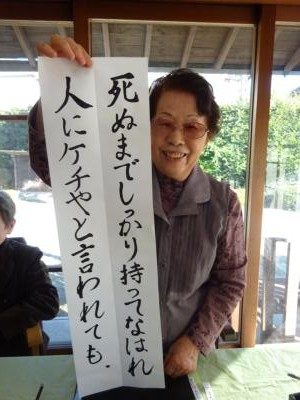 死ぬまでしっかり持ってなはれ
人にケチやと言われても.